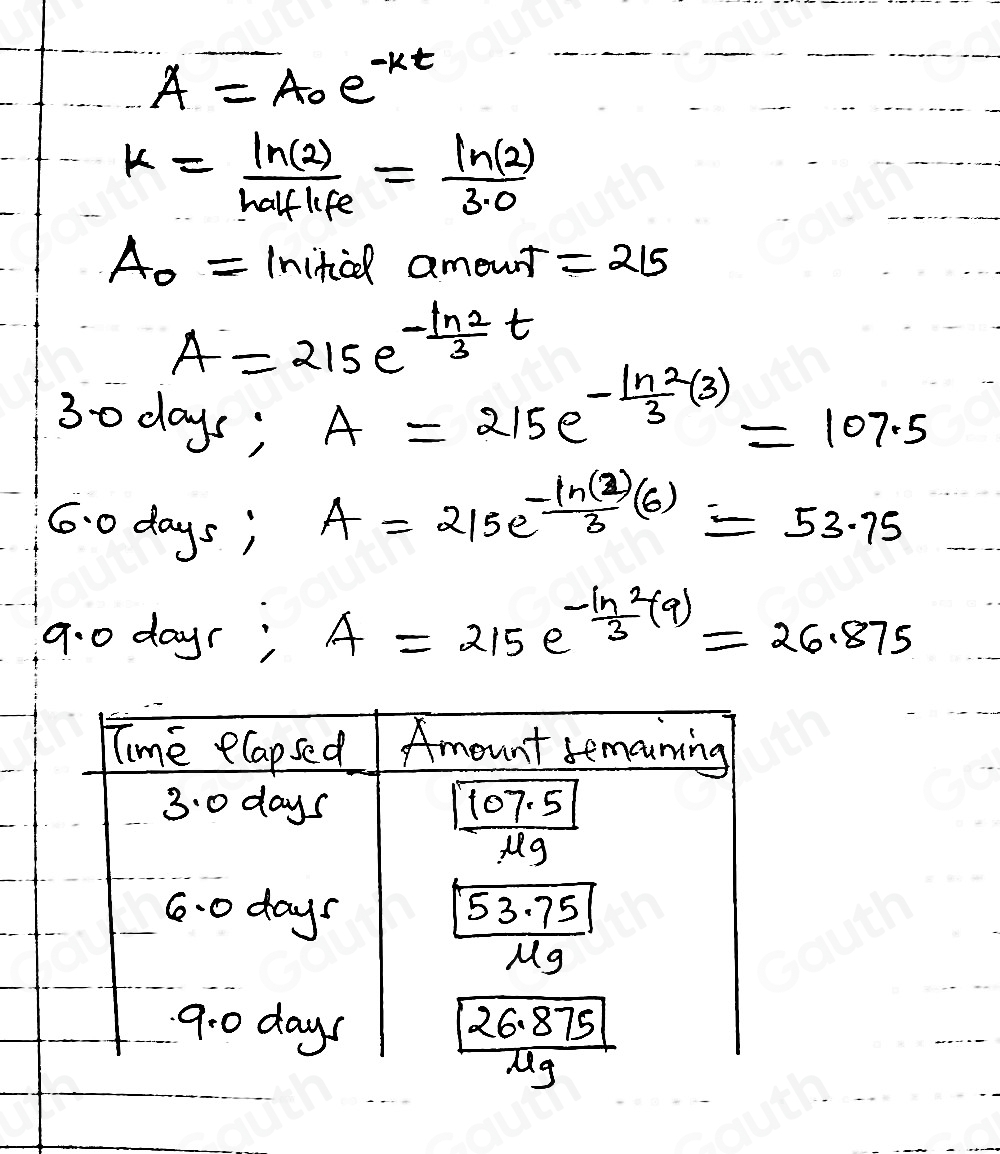 A = A₀e^-kt
K = ln(2)/half life = ln(2)/3.0
A₀ = Initial amount = 215
A = 215e^-ln2/3 t
3.0 days; A = 215e^-ln2/3(3) = 107.5
6.0 days; A = 215e^-ln(2)/3(6) = 53.75
9.0 days; A = 215e^-ln2/3(9) = 26.875
Time elapsed Amount remaining
3.0 days 107.5
μg
6.0 days 53.75
μg
9.0 days 26.875
μg
Gauth